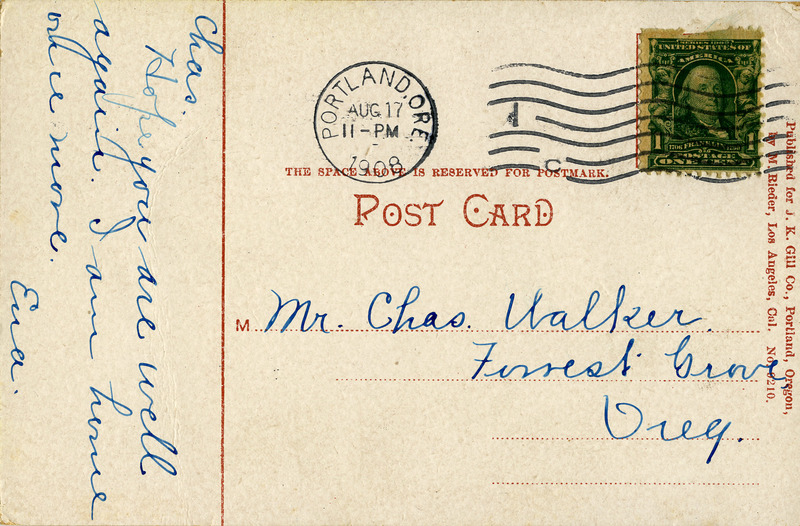 Chas.
Hope you are well
again. I am home
once more.
Eva.
PORTLAND, ORE.
AUG 17
11-PM
1908
SERIES 1902
UNITED STATES OF
AMERICA
1 1
1706 FRANKLIN 1790
POSTAGE
ONE CENT
THE SPACE ABOVE IS RESERVED FOR POSTMARK.
POST CARD
M. Mr. Chas. Walker.
Forrest Grove,
Oreg.
Published for J. K. Gill Co., Portland, Oregon,
by M. Rieder, Los Angeles, Cal. No.